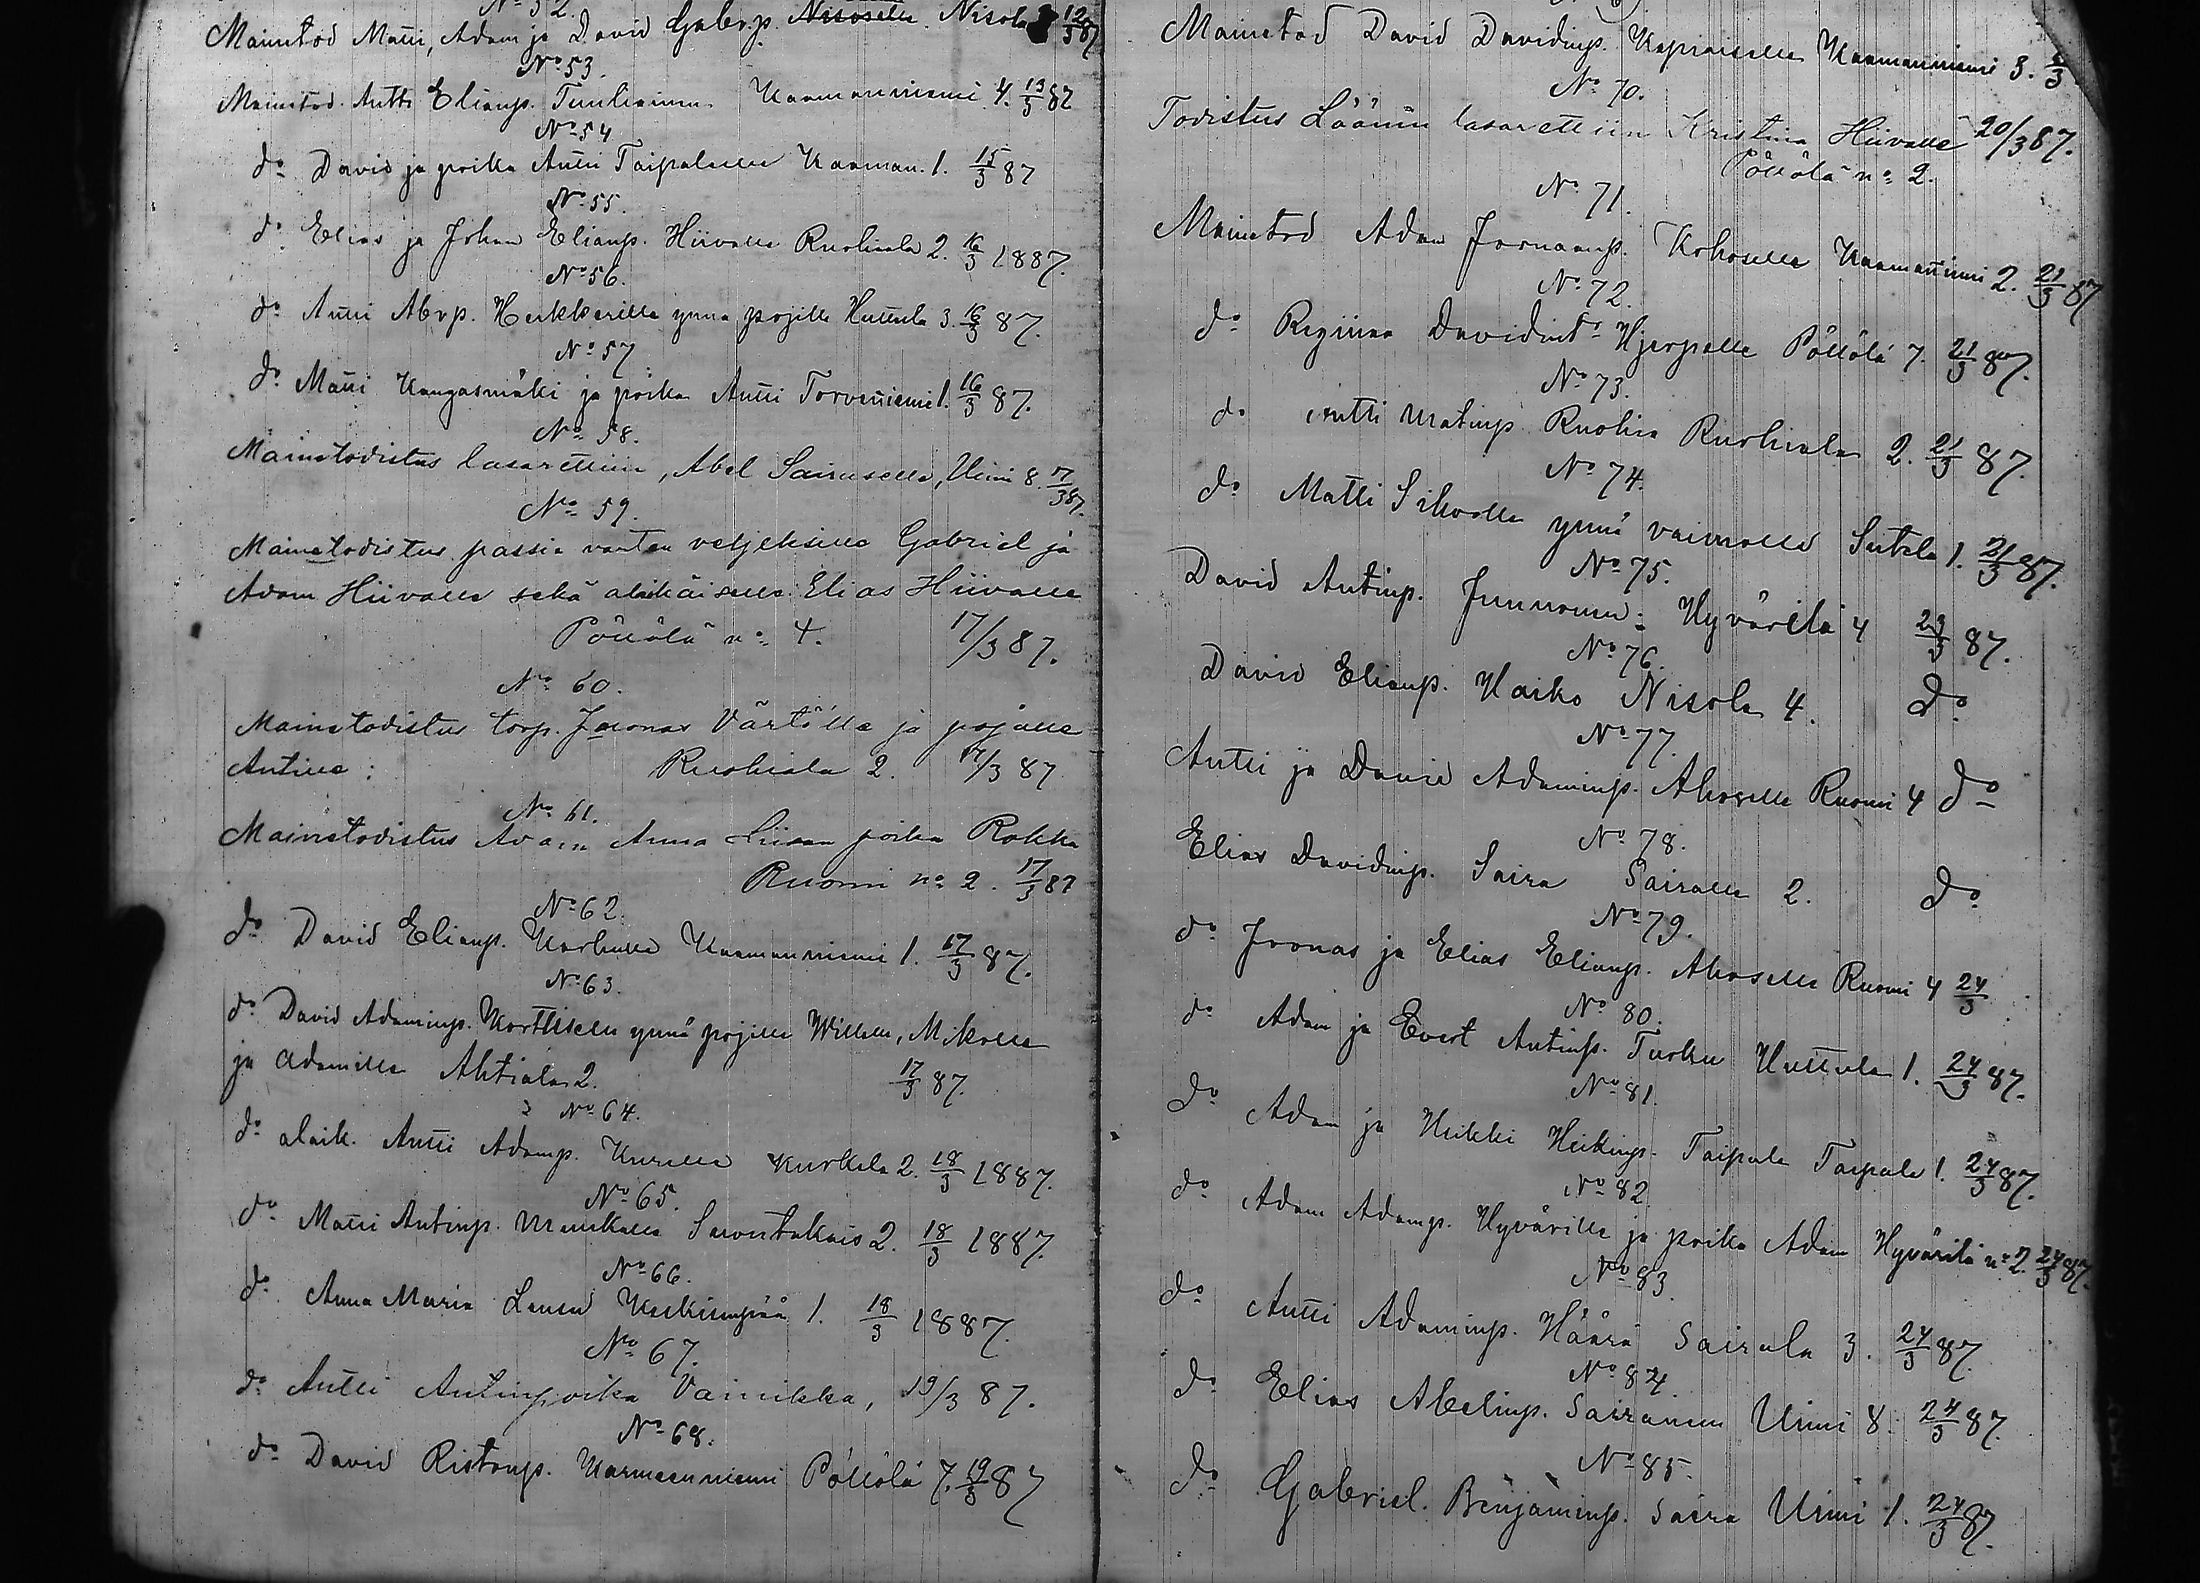 No 52.
Mainetod Matti, Adam ja David Gabrp. Nisoselle Nisola 12/3 87
No 53.
Mainetod. Antti Elianp. Tuuliainen Kaamanniemi 4. 13/3 87
No 54
do David ja poika Antti Taipaleelle Kaaman. 1. 15/3 87
No 55.
do Elias ja Johan Elianp. Hiivalle Ruohiala 2. 16/3 1887.
No 56.
do Antti Abrp. Heikkerille ynnä pojille Huttula 3. 16/3 87.
No 57
do Matti Kangasmäki ja poika Antti Torvenniemi 1. 16/3 87.
No 58.
Mainetodistus lasarettiin, Abel Sairaselle, Uimi 8. 17/3 87.
No 59.
Mainetodistus passia varten veljeksille Gabriel ja
Adam Hiivalle sekä alaikäiselle Elias Hiivalle
Pöllölä no 4. 17/3 87.
No 60.
Mainetodistus torp. Joonas Värtölle ja pojalle
Antille: Ruohiala 2. 17/3 87
No 61.
Mainetodistus Adam Anna Liisan poika Rokka
Ruomi no 2. 17/3 87
No 62.
do David Elianp. Karhulle Kaamanniemi 1. 17/3 87.
No 63.
do David Adaminp. Korttiselle ynnä pojille Wille, Mikolle
ja Adamille Ahtiala 2. 17/3 87.
No 64.
do alaik. Antti Adamp. Kurelle Kurkela 2. 18/3 1887.
No 65.
do Matti Antinp. Munkalle Savontakais 2. 18/3 1887.
No 66.
do Anna Maria Keskimpää 1. 18/3 1887.
No 67.
do Antti Antinpoika Vainikka, 19/3 87.
No 68.
do David Ristonp. Uarmaanniemi Pöllölä 7. 19/3 87
Mainetod David Davidinp. Kapiaiselle Kaamanniemi 3.
No 70.
Todistus Läänin lasarettiin Kristina Hiivalle 20/3 87.
Pöllölä no 2.
No 71.
Mainetod Adam Joonaanp. Kohoselle Kaamanniemi 2. 21/3 87
No 72.
do Regiina Davidint Hjerpelle Pöllölä 7. 21/3 87.
No 73.
do Antti Matinp Ruohia Ruohiala 2. 21/3 87.
No 74.
do Matti Sihvolle ynnä vaimolle Suitela 1. 21/3 87.
No 75.
David Antinp. Junnonen Hyvärilä 4 23/3 87.
No 76.
David Elianp. Haiko Nisola 4. do
No 77.
Antti ja David Adaminp. Ahoselle Ruomi 4 do
No 78.
Elias Davidinp. Saira Sairalle 2. do
No 79.
do Joonas ja Elias Elianp. Ahoselle Ruomi 4 24/3
No 80.
do Adam ja Evert Antinp. Turku Huttula 1. 24/3 87.
No 81.
do Adam ja Heikki Heikinp. Taipale Taipale 1. 24/3 87.
No 82
do Adam Adamp. Hyvärille ja poika Adam Hyvärilä no 2. 24/3 87.
No 83.
do Antti Adaminp. Häärä Sairala 3. 24/3 87.
No 84.
do Elias Abelinp. Sairanen Uimi 8. 24/3 87.
No 85.
do Gabriel. Benjaminp. Saira Uimi 1. 24/3 87.